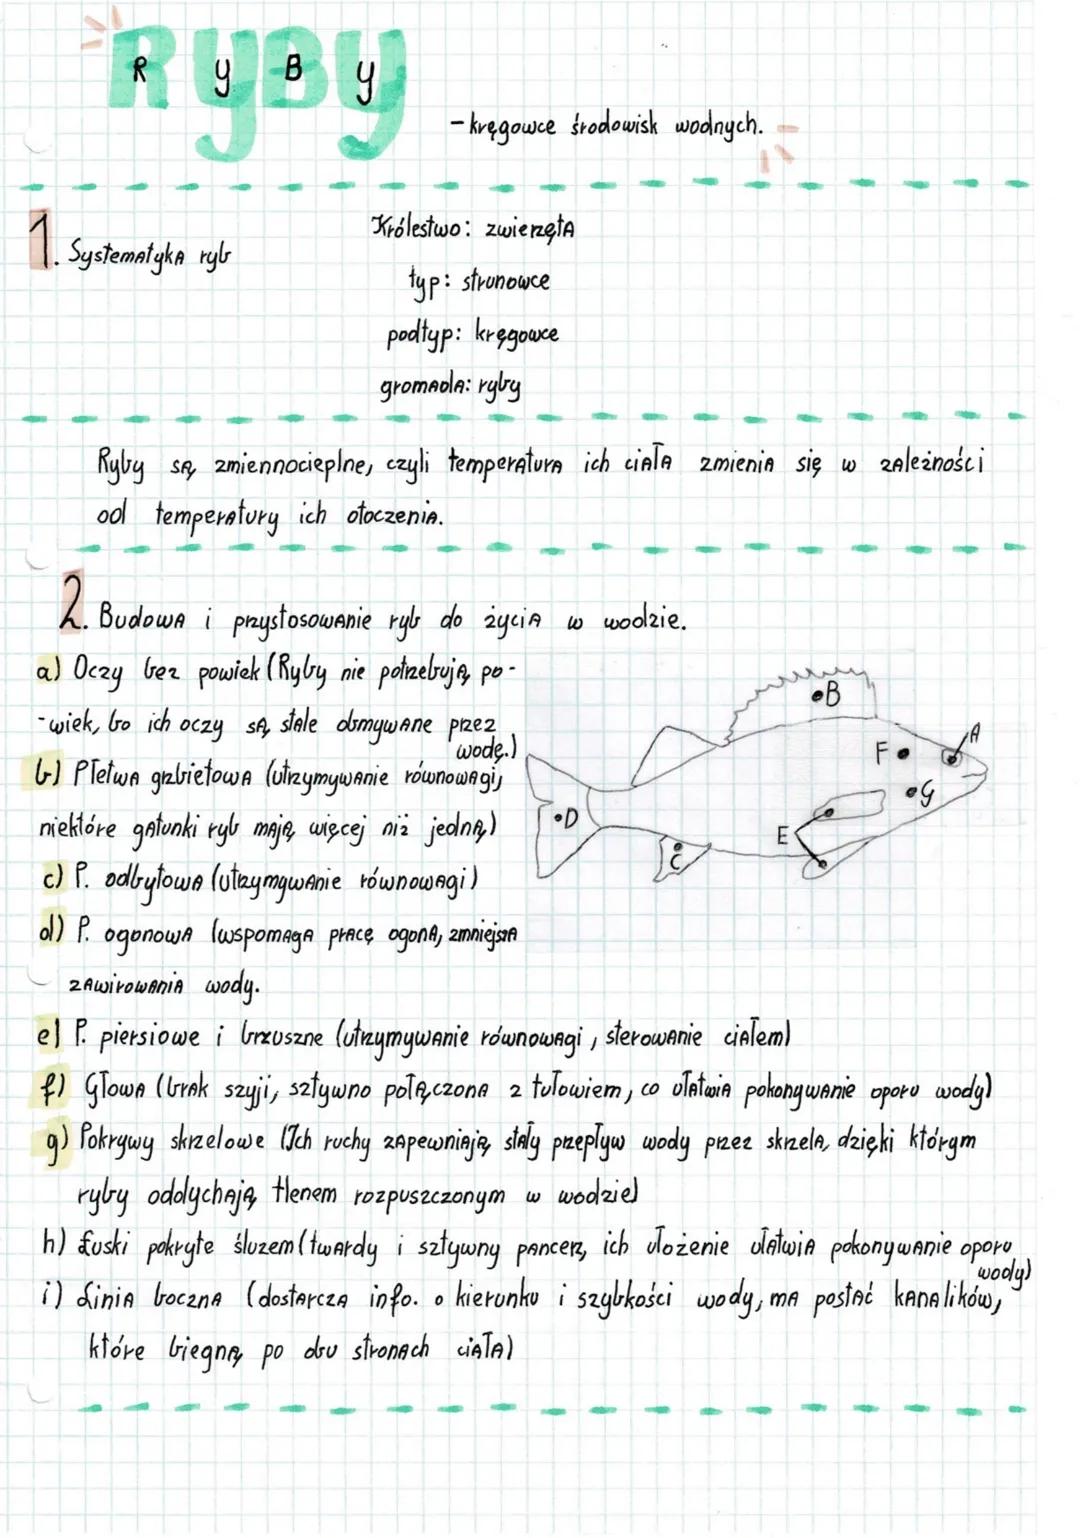 RYBY
R Y B Y
- kręgowce środowisk wodnych.
1. Systematyka ryb
Królestwo: zwierzęta
typ: strunowce
podtyp: kręgowce
gromada: ryby
Ryby są zmiennocieplne, czyli temperatura ich ciała zmienia się w zależności
od temperatury ich otoczenia.
2. Budowa i przystosowanie ryb do życia w wodzie.
a) Oczy bez powiek (Ryby nie potrzebują po-
-wiek, bo ich oczy są stale obmywane przez
wodę.)
b) Płetwa grzbietowa (utrzymywanie równowagi,
niektóre gatunki ryb mają więcej niż jedną)
c) P. odbytowa (utrzymywanie równowagi)
d) P. ogonowa (wspomaga pracę ogona, zmniejsza
zawirowania wody.
B
A
F
G
D
E
C
e) P. piersiowe i brzuszne (utrzymywanie równowagi, sterowanie ciałem)
f) Głowa (brak szyji, sztywno połączona z tułowiem, co ułatwia pokonywanie oporu wody)
g) Pokrywy skrzelowe (Ich ruchy zapewniają stały przepływ wody przez skrzela, dzięki którym
ryby oddychają tlenem rozpuszczonym w wodzie)
h) Łuski pokryte śluzem (twardy i sztywny pancerz, ich ułożenie ułatwia pokonywanie oporu
wody)
i) Linia boczna (dostarcza info. o kierunku i szybkości wody, ma postać kanalików,
które biegną po obu stronach ciała)